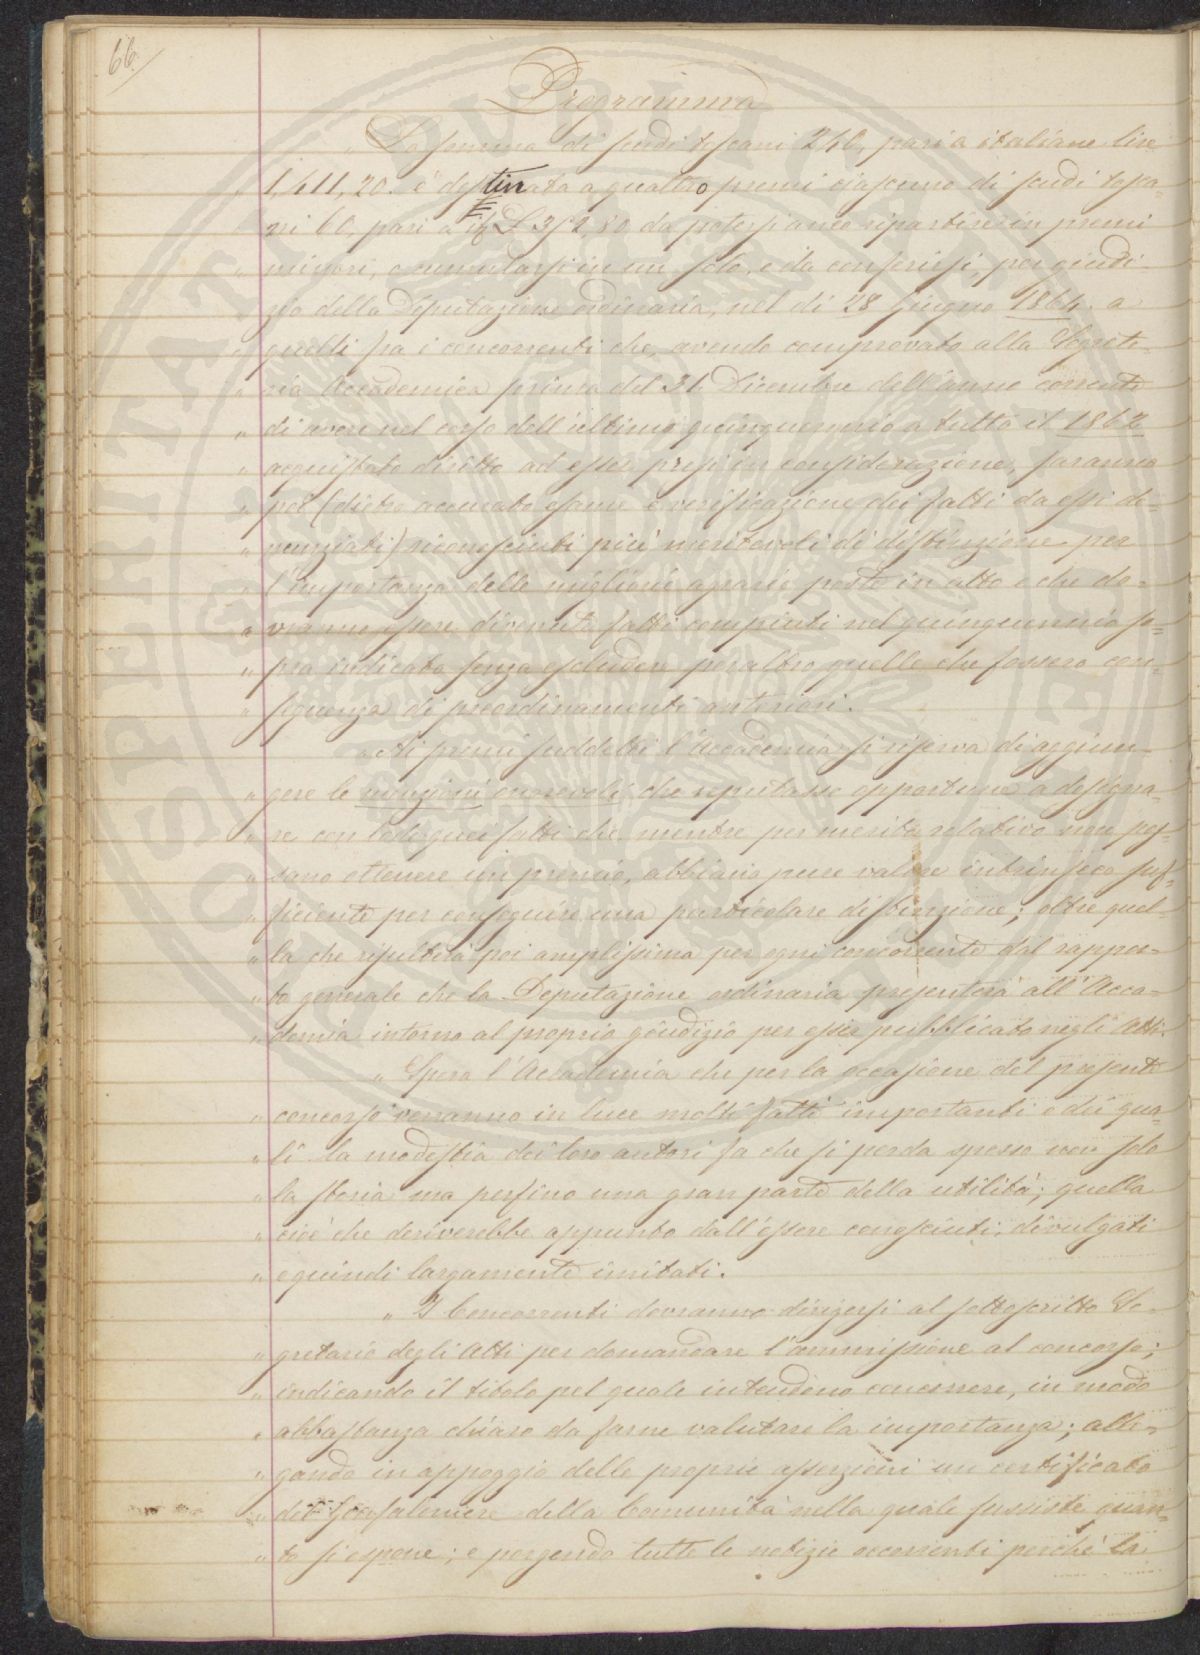 66.
Programma
„ La somma di scudi toscani 240, pari a italiane lire
„ 1,411,20. è destinata a quattro premi ciascuno di scudi tosca-
„ ni 60, pari a it L 352,80 da potersi anco ripartire in premi
„ minori, o cumularsi in un solo, e da conferirsi, per giudi-
„ zio della Deputazione ordinaria, nel di 28 Giugno 1864. a
„ quelli fra i concorrenti che, avendo comprovato alla Segrete-
„ ria Accademica prima del 31 Dicembre dell'anno corrente
„ di avere nel corso dell'ultimo quinquennio a tutto il 1862
„ acquistato diritto ad esser presi in considerazione, saranno
„ poi (dietro accurato esame e verificazione dei fatti da essi de-
„ nunziati) riconosciuti più meritevoli di distinzione per
„ l'importanza delle migliorie agrarie poste in atto e che do-
„ vranno essere divenute fatti compiuti nel quinquennio so-
„ pra indicato senza escludere peraltro quelle che fossero con-
„ seguenza di preordinamenti anteriori.
„ Ai premi suddetti l'Accademia si riserva di aggiun-
„ gere le menzioni onorevoli che reputasse opportune a designa-
„ re con lode quei fatti che mentre per merito relativo non pos-
„ sano ottenere un premio, abbiano pure valore intrinseco suf-
„ ficiente per conseguire una particolare distinzione; oltre quel-
„ la che risulterà poi amplissima per ogni concorrente dal rappor-
„ to generale che la Deputazione ordinaria presenterà all'Acca-
„ demia intorno al proprio giudizio per esser pubblicato negli Atti.
„ Spera l'Accademia che per la occasione del presente
„ concorso verranno in luce molti fatti importanti e dei qua-
„ li la modestia dei loro autori fa che si perda spesso non solo
„ la storia ma perfino una gran parte della utilità; quella
„ cioè che deriverebbe appunto dall'essere conosciuti, divulgati
„ e quindi largamente imitati.
„ I Concorrenti dovranno dirigersi al sottoscritto Se-
„ gretario degli Atti per domandare l'ammissione al concorso;
„ indicando il titolo pel quale intendono concorrere, in modo
„ abbastanza chiaro da farne valutare la importanza; alle-
„ gando in appoggio delle proprie asserzioni un certificato
„ del Gonfaloniere della Comunità nella quale sussiste quan-
„ to si espone; e porgendo tutte le notizie occorrenti perché la